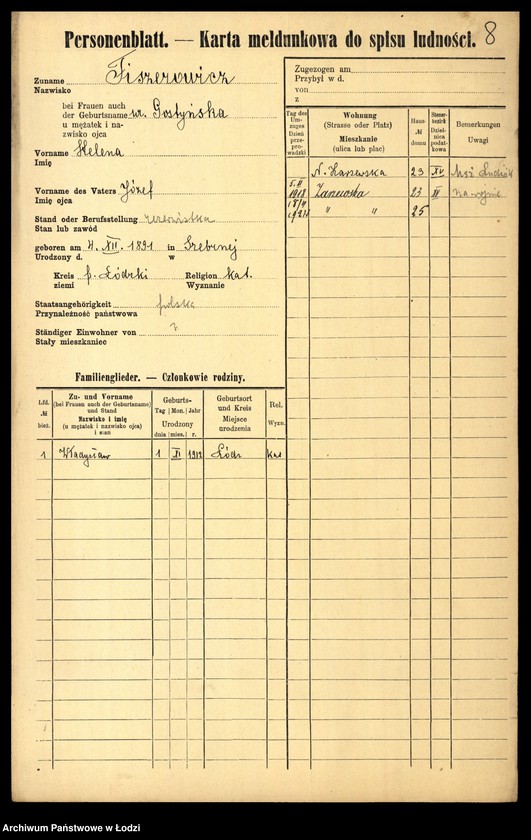 Personenblatt. — Karta meldunkowa do spisu ludności. 8
Zuname Fiszerowicz
Nazwisko
bei Frauen auch
der Geburtsname ur. Gostyńska
u mężatek i na-
zwisko ojca
Vorname Helena
Imię
Vorname des Vaters Józef
Imię ojca
Stand oder Berufsstellung rezerwistka
Stan lub zawód
geboren am 4. XII. 1891 in
Urodzony d. w
Kreis p. Łódzki Religion kat.
ziemi Wyznanie
Staatsangehörigkeit polska
Przynależność państwowa
Ständiger Einwohner von ?
Stały mieszkaniec
Zugezogen am
Przybył w d.
von
z
Tag des Um-zuges Dzień prze-prowadzki
Wohnung (Strasse oder Platz) Mieszkanie (ulica lub plac)
Haus-№ domu
Steuer-bezirk Dziel-nica podat-kowa
Bemerkungen Uwagi
N. Zarzewska 23 XV Mąż
5.II 1918 Zarzewska 23 na wojnie
" " 25
Familienglieder. — Członkowie rodziny.
Lfd. № bież.
Zu- und Vorname (bei Frauen auch der Geburtsname) und Stand Nazwisko i imię (u mężatek i nazwisko ojca) i stan
Geburts- Tag Mon. Jahr Urodzony dnia mies. r.
Geburtsort und Kreis Miejsce urodzenia
Rel. Wyzn.
1 Władysław 1 XI 1912 Łódź Kat
Archiwum Państwowe w Łodzi